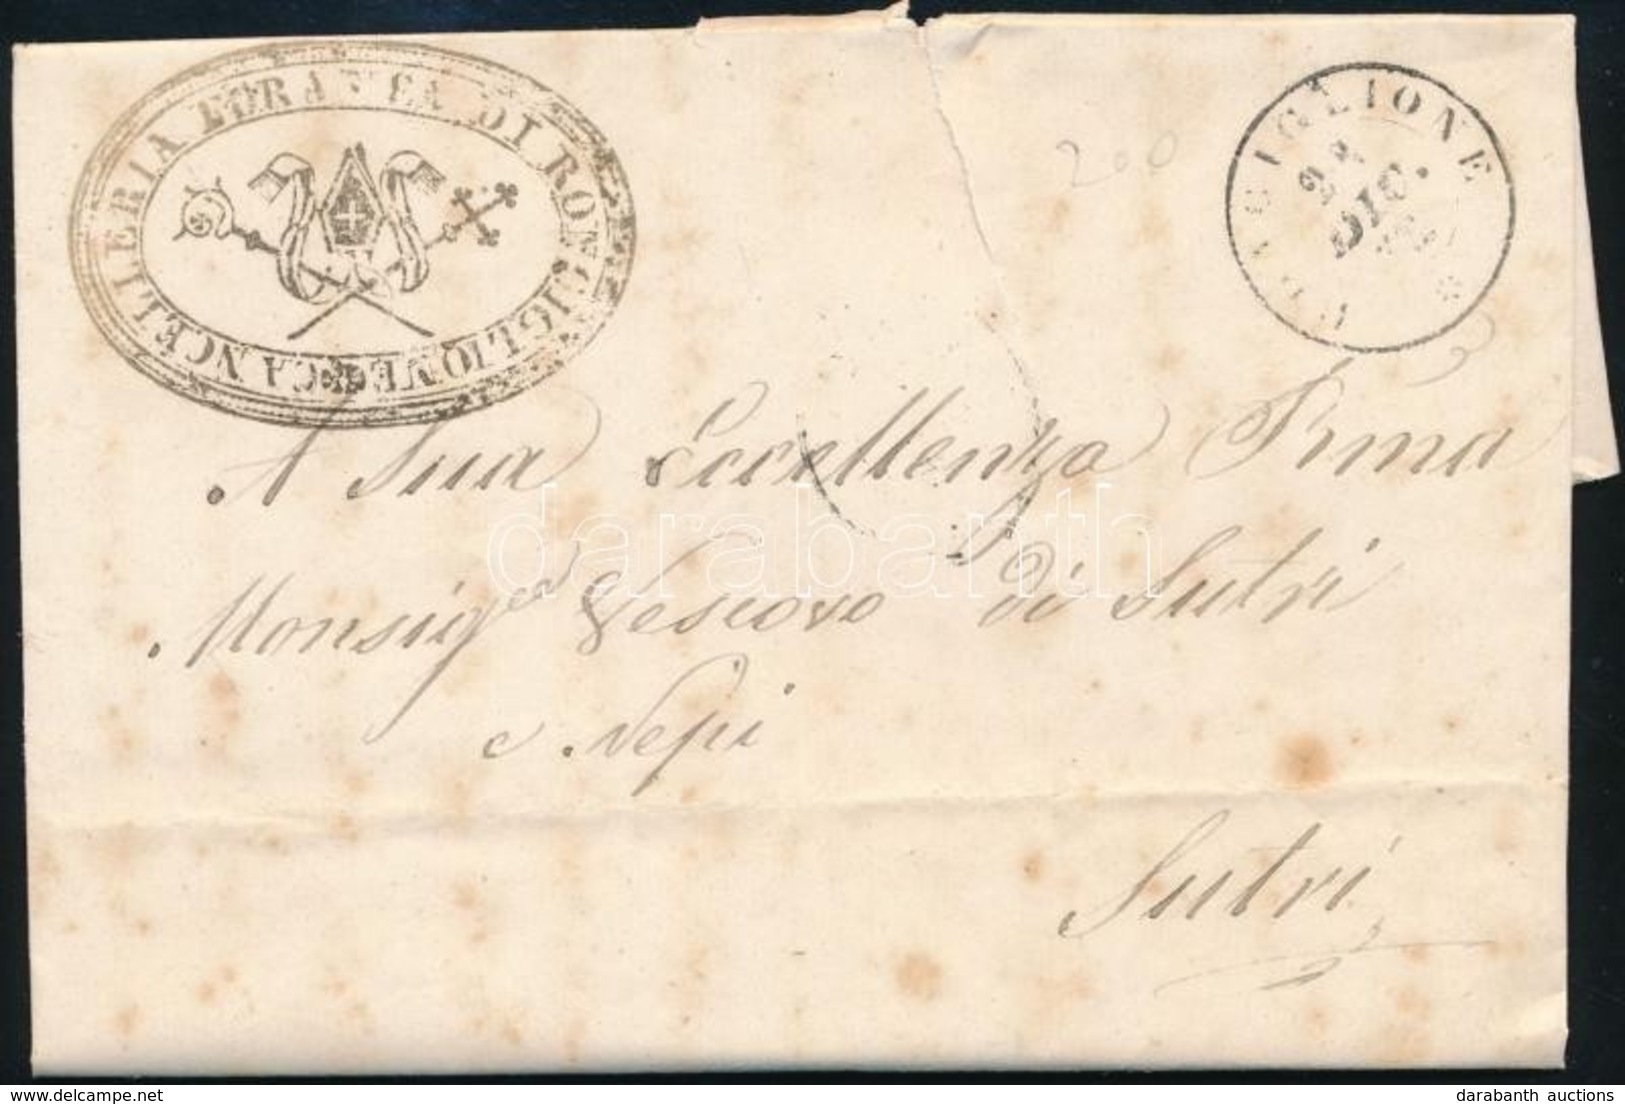 CANCELLERIA FORANEA DI RONCIGLIONE
RONCIGLIONE
DIC.
200
A Sua Eccellenza Rma
Monsigr Vescovo di Sutri
e Nepi
Sutri
darabanth
darabanth auctions